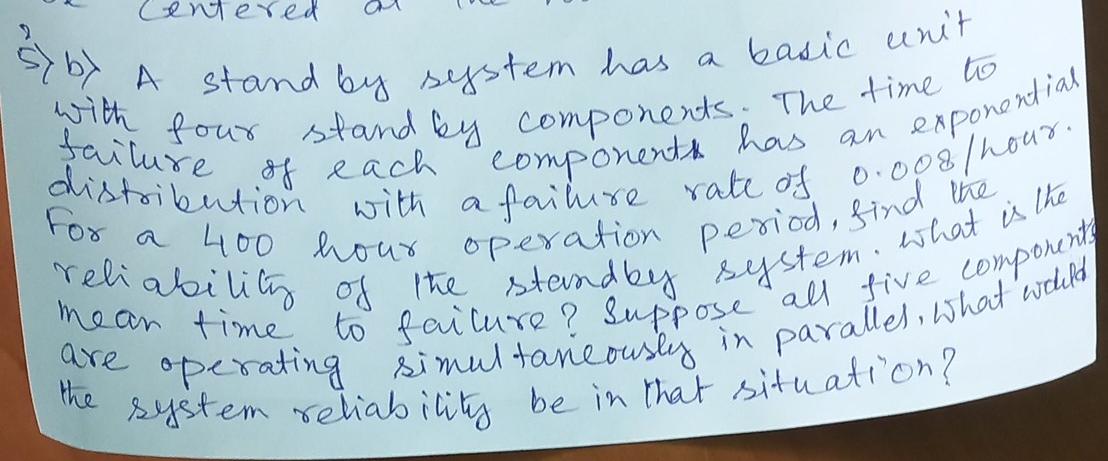 centered at the
5) b) A stand by system has a basic unit
with four stand by components. The time to
failure of each components has an exponential
distribution with a failure rate of 0.008/hour.
For a 400 hour operation period, find the
reliability of the standby system. What is the
mean time to failure? Suppose all five components
are operating simultaneously in parallel, what would
the system reliability be in that situation?